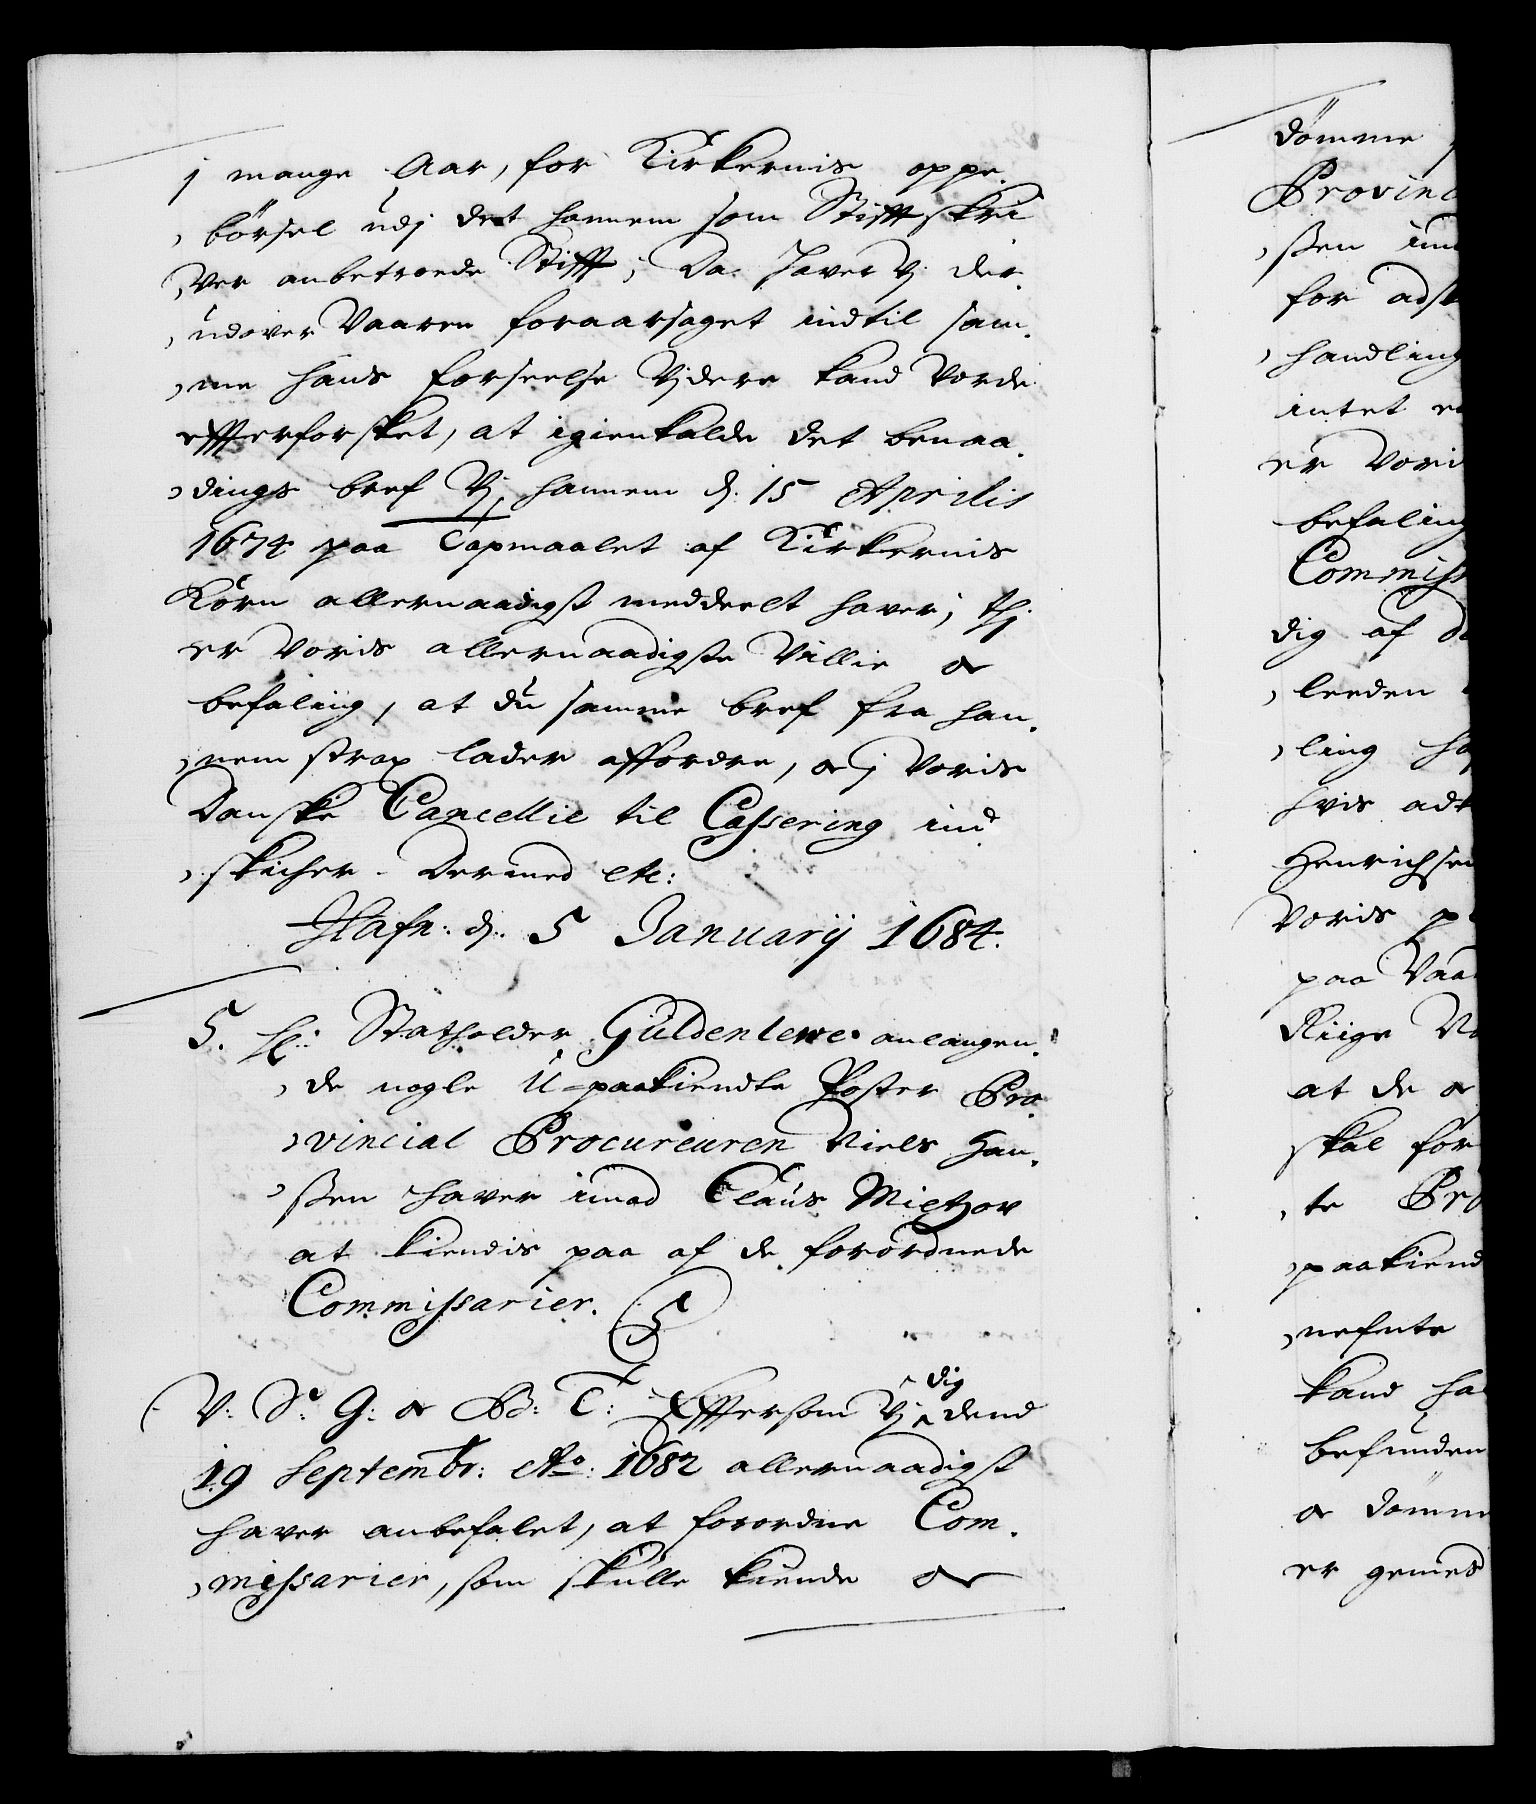 j mange Aar, for Kirkernis oppe,
,börsel udj det hannem som Stifftskri
,ver anbetroede Stifft, Da haver Vj der,
,udover Vaaren foraarsaget indtil sam,
,me hans forseelse Vjdere kand vorde
effterforsket, at igienkalde det benaa,
,dings bref Vj hannem d: 15 Aprilis
1674 paa Tapmaalet af Kirkernis
Korn allernaadigst meddeelt haver, thj
er Voris allernaadigste Villie oc
befaling, at du samme bref fra han,
,nem strax lader affordre, oc j Voris
Danske Cancellie til Cassering ind
,skicher. Dermed etc:
Hafn: d: 5 Januarij 1684.
5. Hr: Statholder Guldenlewe anlangen,
,de nogle U=paakiendte Poster Pro,
,vincial Procureuren Niels Han,
,ßen haver imod Claus Mietzov
at kiendis paa af de forordnede
Commissarier. 5
V: S: G: oc B: T: Efftersom Vj dig dend
19 Septembr: Ao: 1682 allernaadigst
haver anbefalet, at forordne Com,
,missarier, som skulle kiende oc
dömme
Provinc
,ßen im
for adsk
,handling
intet
er Vori
befaling
Commiss
dig af
,leeden
,ling
hvis adk
Henrichsen
Voris
paa Vaa
Riige
at de oc
skal for
,te Pro
,paakiend
,nefnte
kand ha
befunden
oc dömm
er gemes